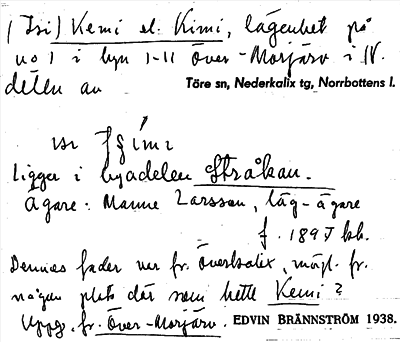 (Isi) Kemi el. Kimi, lägenhet på
no 1 i byn 1-11 Över-Morjärv i N.
delen av Töre sn, Nederkalix tg, Norrbottens l.
Ligger i byadelen Stråkan.
Ägare: Manne Larsson, läg-ägare
f. 1895 bb.
Dennes fader var fr. Överkalix, möjl. fr.
någon plats där som hette Kemi?
Uppg. fr. Över-Morjärv. EDVIN BRÄNNSTRÖM 1938.